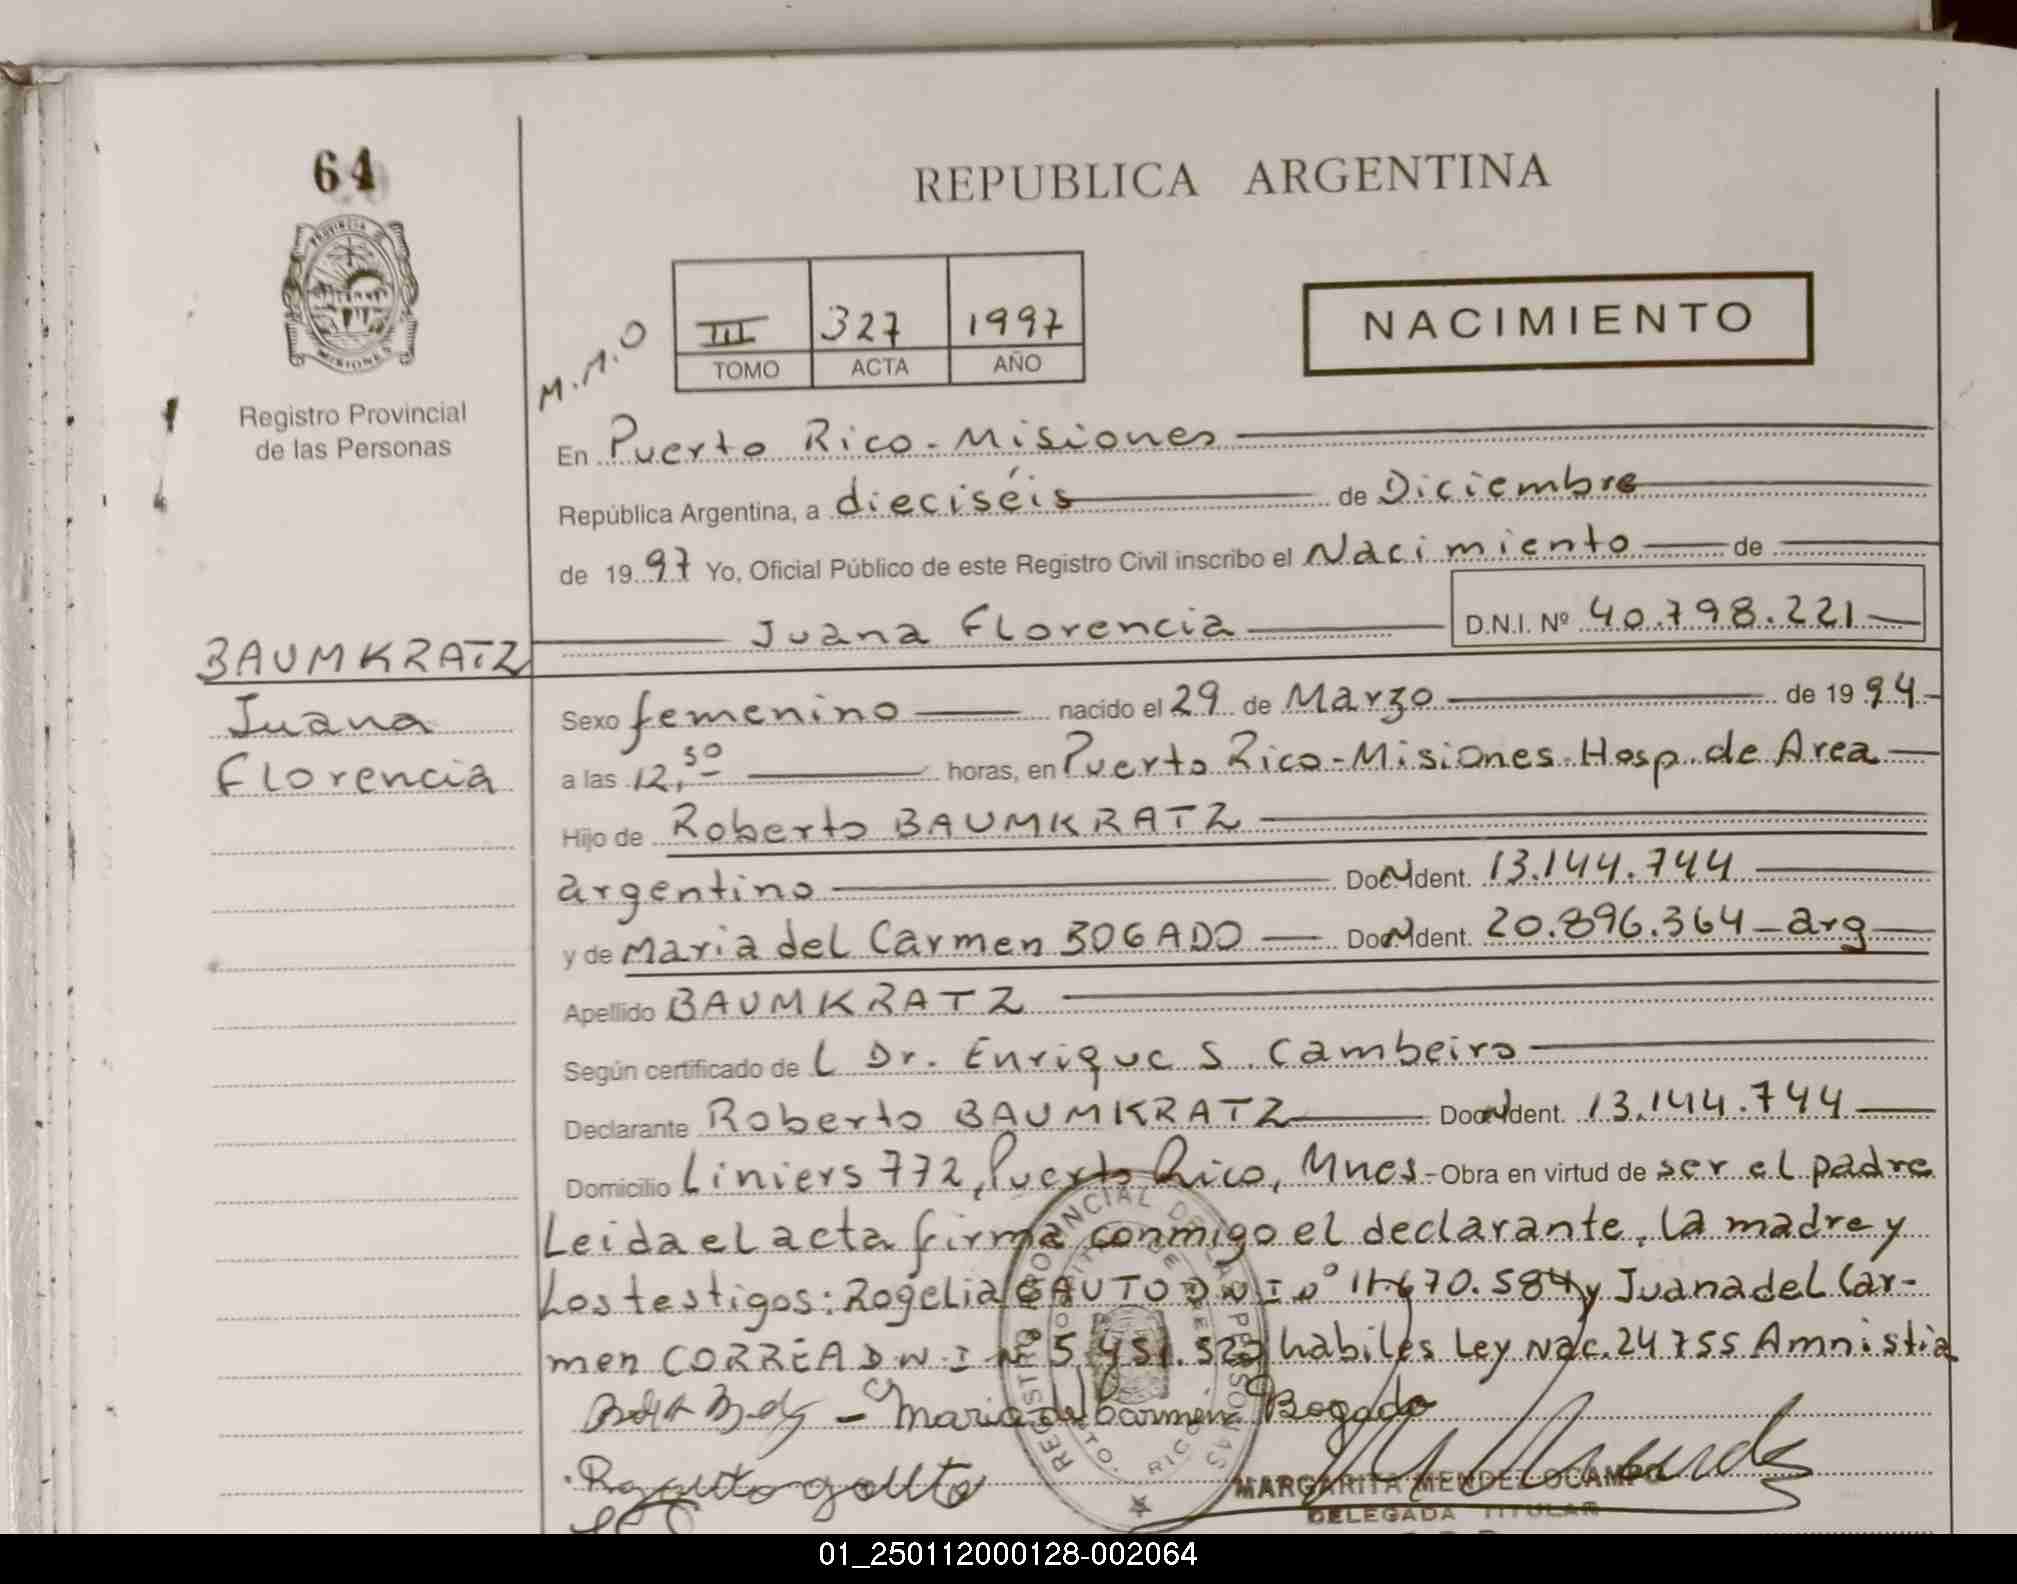 64
REPUBLICA ARGENTINA
PROVINCIA DE
MISIONES
M.M.O
III 327 1997
TOMO ACTA AÑO
NACIMIENTO
Registro Provincial
de las Personas
En Puerto Rico - Misiones
República Argentina, a dieciséis de Diciembre
de 1997 Yo, Oficial Público de este Registro Civil inscribo el Nacimiento de
Juana Florencia D.N.I. Nº 40.798.221
BAUMKRATZ
Juana
Florencia
Sexo femenino nacido el 29 de Marzo de 1994
a las 12,50 horas, en Puerto Rico - Misiones - Hosp. de Area
Hijo de Roberto BAUMKRATZ
argentino Doc. Ident. 13.144.744
y de Maria del Carmen BOGADO Doc. Ident. 20.896.364 - arg
Apellido BAUMKRATZ
Según certificado de L Dr. Enrique S. Cambeiro
Declarante Roberto BAUMKRATZ Doc. Ident. 13.144.744
Domicilio Liniers 772, Puerto Rico, Mnes - Obra en virtud de ser el padre
Leida el acta firma conmigo el declarante, la madre y
Los testigos: Rogelia GAUTO DNI nº 11.670.584 y Juana del Car-
men CORREA DNI Nº 5.451.523 habiles Ley Nac. 24755 Amnistia
Maria del Carmen Bogado
REGISTRO PROVINCIAL DE LAS PERSONAS
PTO. RICO
MARGARITA MENDEZ OCAMPO
DELEGADA TITULAR
01_250112000128-002064